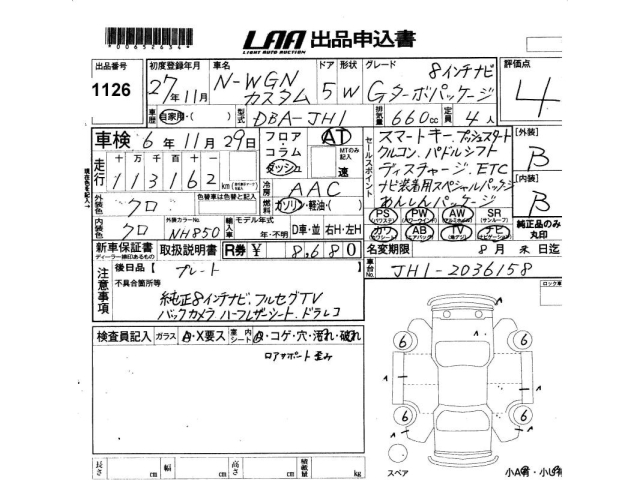 00652634
LAA 出品申込書
LIGHT AUTO AUCTION
出品番号 1126
初度登録年月 27年11月
車名 N-WGN カスタム
ドア 形状 5 W
グレード 8インチナビ Gターボパッケージ
評価点 4
車歴 自家用・ 型式 DBA-JH1 排気量 660cc 定員 4人
車検 6年11月29日
フロア・コラム ダッシュ AT MTのみ記入 速
走行 十万千百十一 113162km
現在色を記入
外装色 クロ 色替車は色替と記入
冷房 AAC
燃料 ガソリン・軽油・( )
内装色 クロ 外装カラーNo. NH850
輸入車 モデル年式 年・不明 D車・並 右H・左H
セールスポイント
スマートキー、プッシュスタート
クルコン、パドルシフト
ディスチャージ、ETC
ナビ装着用スペシャルパッケージ
あんしんパッケージ
【外装】 B
【内装】 B
PS (パワステ) PW (パワーウインドウ) AW (アルミホイル) SR (サンルーフ)
カワ (カワシート) AB (エアバック) TV (純テレビ) ナビ (ナビゲーション)
純正品のみ丸印
新車保証書 ディーラー捺印あるもの 取扱説明書 R券 ¥ 8,680
名変期限 8月末日迄
車台No. JH1-2036158
注意事項
後日品【 プレート 】
不具合箇所等
純正8インチナビ、フルセグTV
バックカメラ、ハーフレザーシート、ドラレコ
検査員記入 ガラス A・X要ス 室内シート A・コゲ・穴・汚れ・破れ
ロアサポート歪み
6 6
6 6
長さ cm 幅 cm 高さ cm 積載量 kg
スペア
小A有・小U有